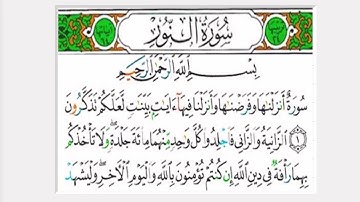 سُورَةُ النُّورِ
بِسْمِ اللَّهِ الرَّحْمَٰنِ الرَّحِيمِ
سُورَةٌ أَنزَلْنَاهَا وَفَرَضْنَاهَا وَأَنزَلْنَا فِيهَا آيَاتٍ بَيِّنَاتٍ لَّعَلَّكُمْ تَذَكَّرُونَ
١ الزَّانِيَةُ وَالزَّانِي فَاجْلِدُوا كُلَّ وَاحِدٍ مِّنْهُمَا مِائَةَ جَلْدَةٍ ۖ وَلَا تَأْخُذْكُم
بِهِمَا رَأْفَةٌ فِي دِينِ اللَّهِ إِن كُنتُمْ تُؤْمِنُونَ بِاللَّهِ وَالْيَوْمِ الْآخِرِ ۖ وَلْيَشْهَدْ